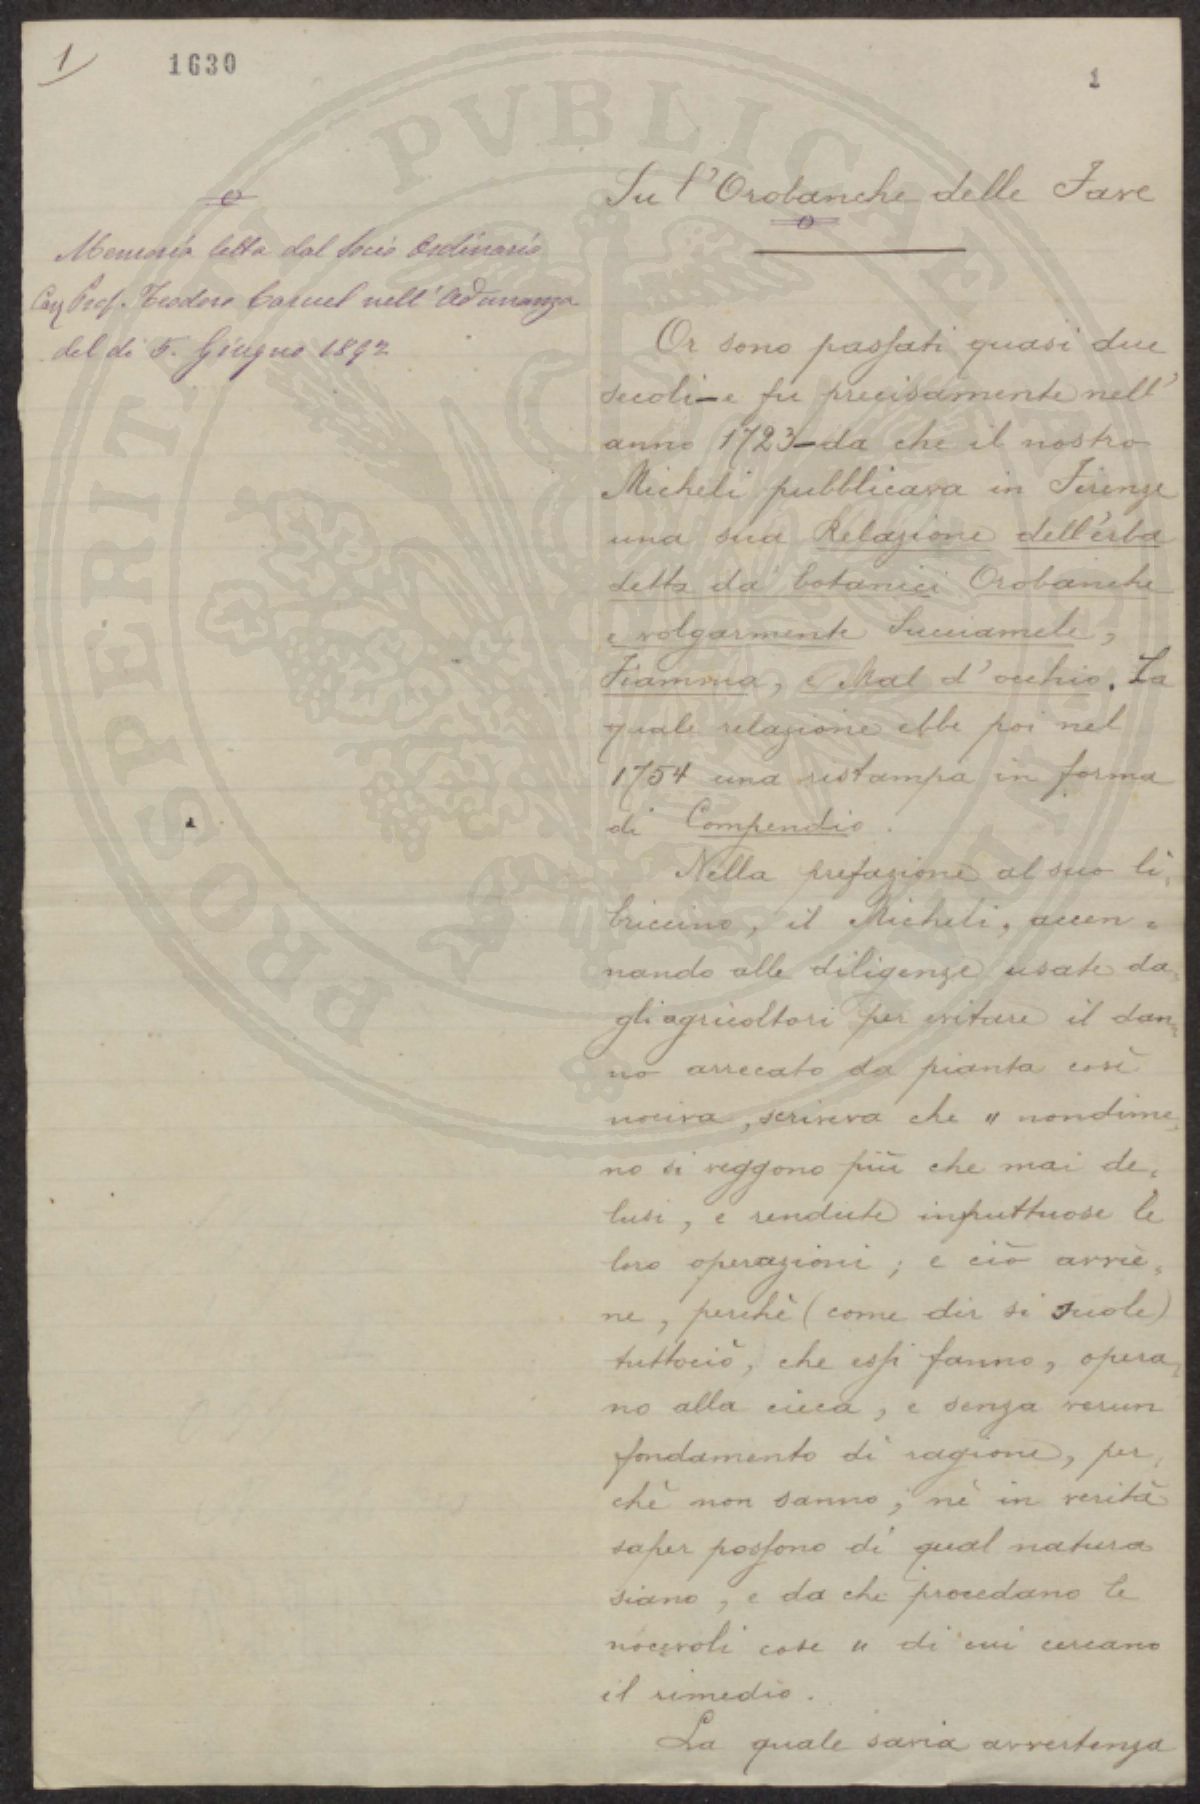 1
1630
1
Su l'Orobanche delle Fave
Memoria letta dal Socio Ordinario
Cav Prof. Teodoro Caruel nell'Adunanza
del dì 5. Giugno 1892
Or sono passati quasi due
secoli – e fu precisamente nell'
anno 1723 – da che il nostro
Micheli pubblicava in Firenze
una sua Relazione dell'erba
detta da' botanici Orobanche
e volgarmente Succiamele,
Fiamma, e Mal d'occhio. La
quale relazione ebbe poi nel
1754 una ristampa in forma
di Compendio.
Nella prefazione al suo li,
briccino, il Micheli, accen,
nando alle diligenze usate da,
gli agricoltori per evitare il dan,
no arrecato da pianta così
nociva, scriveva che " nondime,
no si veggono più che mai de,
lusi, e rendute infruttuose le
loro operazioni; e ciò avvie,
ne, perchè (come dir si suole)
tuttociò, che essi fanno, opera,
no alla cieca, e senza verun
fondamento di ragione, per,
chè non sanno, nè in verità
saper possono di qual natura
siano, e da che procedano le
nocevoli cose " di cui cercano
il rimedio.
La quale savia avvertenza
PROSPERITATI PVBLICAE